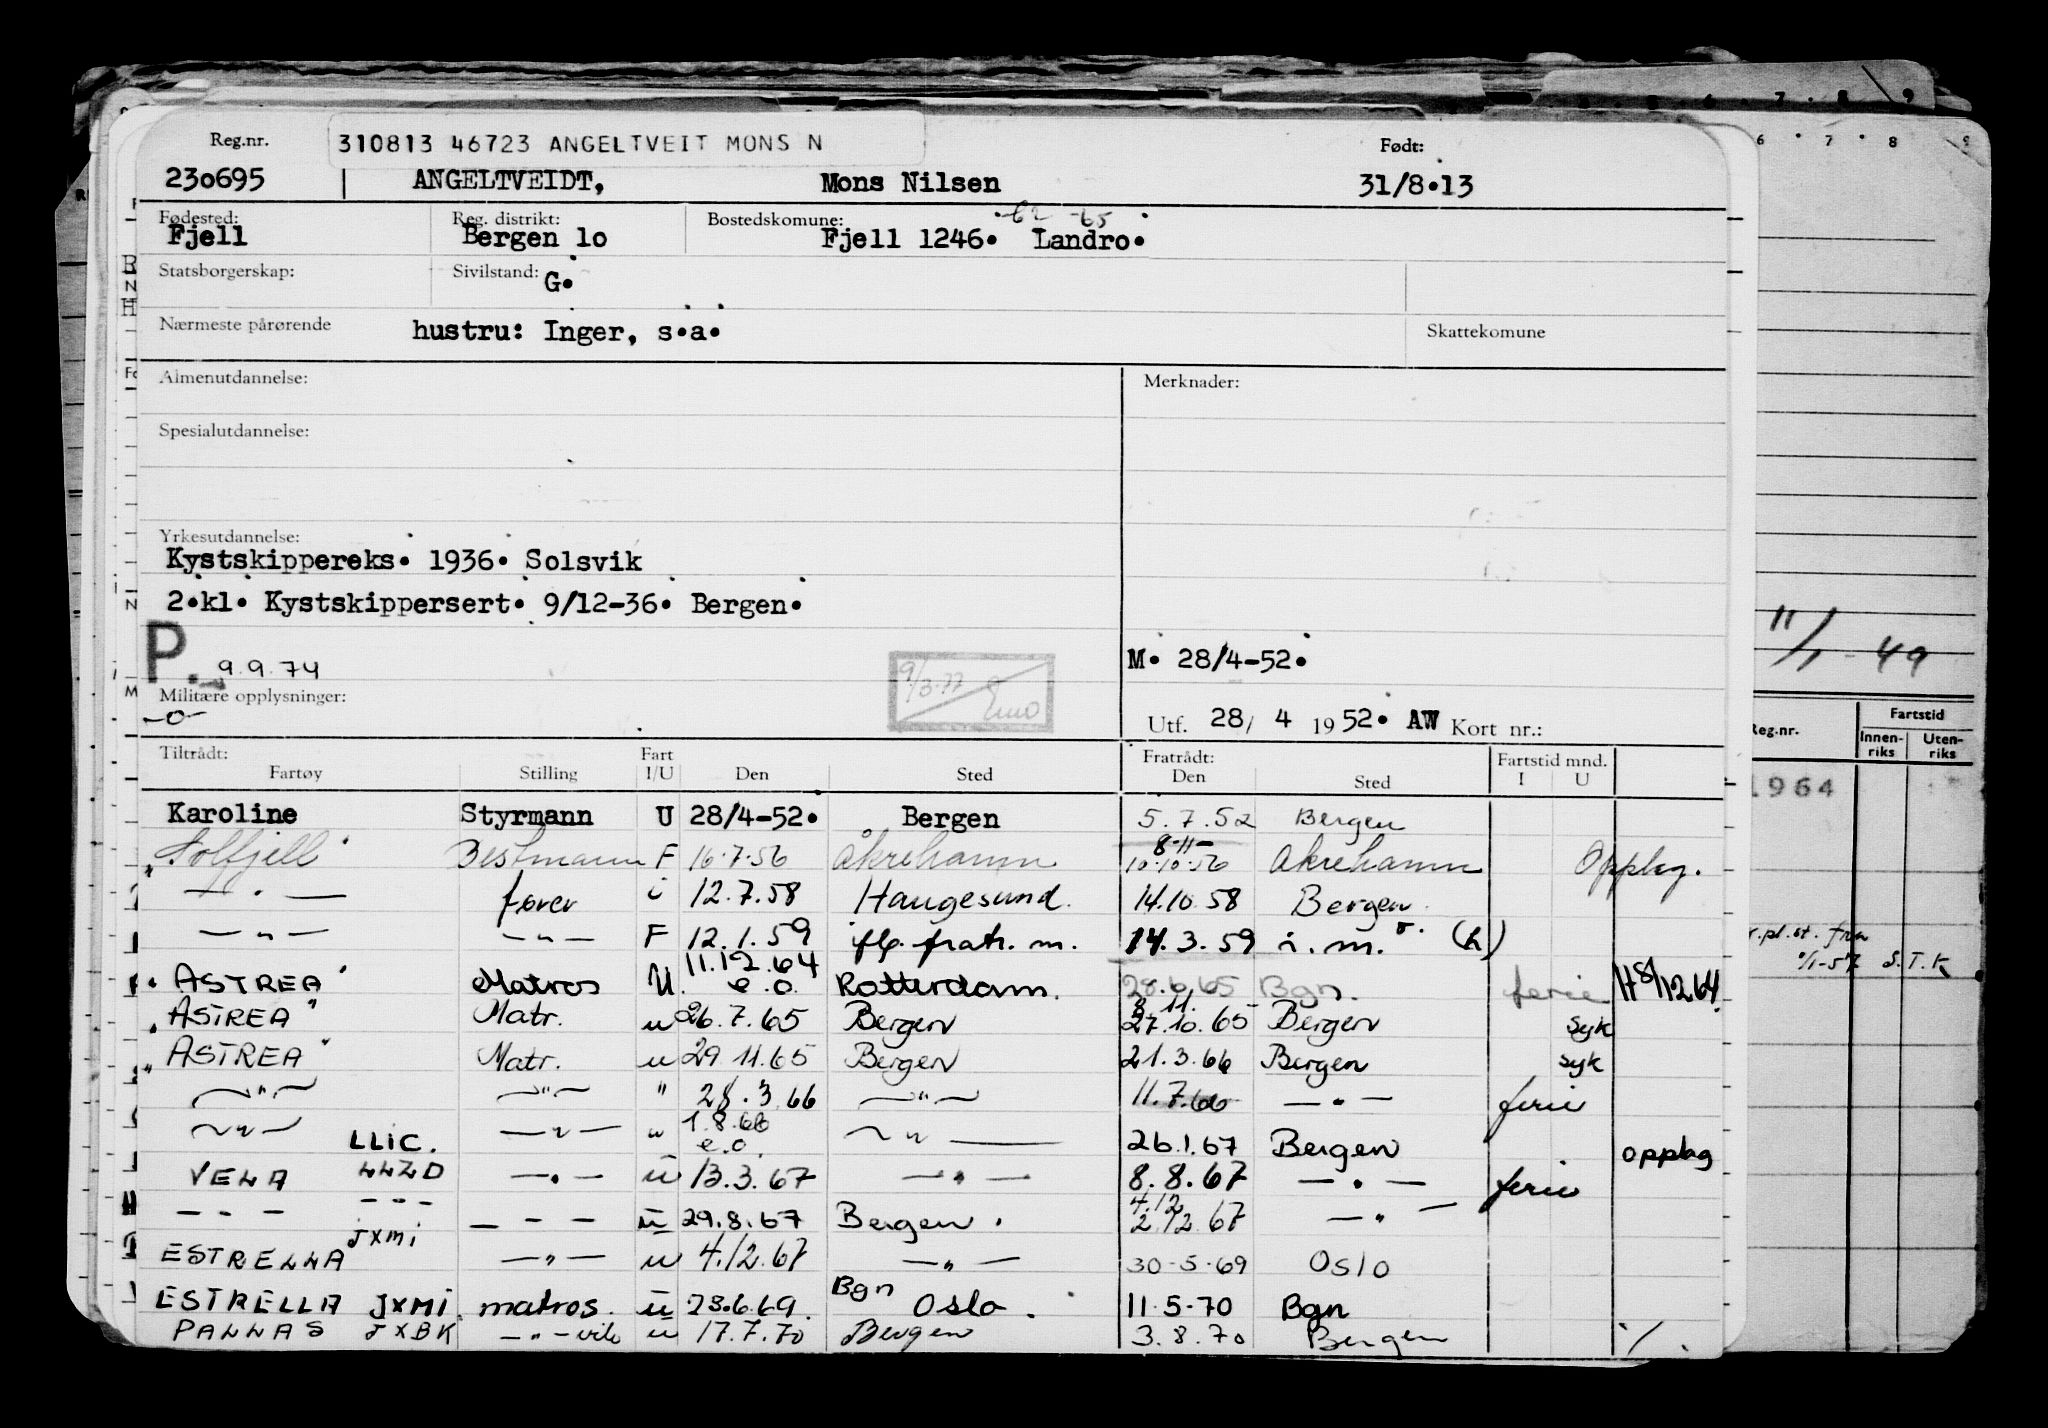 Reg.nr. 310813 46723 ANGELTVEIT MONS N Født:
230695 ANGELTVEIDT, Mons Nilsen 31/8.13
Fødested: Reg. distrikt: Bostedskomune: -62 -65
Fjell Bergen 10 Fjell 1246. Landro.
Statsborgerskap: Sivilstand: G.
Nærmeste pårørende hustru: Inger, s.a. Skattekomune
Almenutdannelse: Merknader:
Spesialutdannelse:
Yrkesutdannelse:
Kystskippereks. 1936. Solsvik
2.kl. Kystskippersert. 9/12-36. Bergen.
P. 9.9.74 9/3.77 M. 28/4-52.
11/1-49
Militære opplysninger:
-o-
Utf. 28/ 4 1952. AW Kort nr.:
Reg.nr. Fartstid
Innenriks Utenriks
Tiltrådt: Fart Fratrådt: Fartstid mnd.
Fartøy Stilling I/U Den Sted Den Sted I U
1964
Karoline Styrmann U 28/4-52. Bergen 5.7.52 Bergen
8-11-
"Solfjell" Bestmann F 16.7.56 Åkrehamn 10.10.56 Åkrehamn Opplag.
— " — fører i 12.7.58 Haugesund. 14.10.58 Bergen.
— " — — " — F 12.1.59 ifl. fratr. m. 14.3.59 i. m. (h)
11.12.64
"ASTREA" Matros U. e.o. Rotterdam. 28.6.65 Bgn. ferie H 8/12 64
8.11.
"ASTREA" Matr. u 26.7.65 Bergen 27.10.65 Bergen syk
"ASTREA" Matr. u 29.11.65 Bergen 21.3.66 Bergen syk
— " — — " — " 28.3.66 — " — 11.7.66 — " — ferie
1.8.66
— " — LLIC. — " — " e.o. — " — 26.1.67 Bergen opplag
VELA LLZD — " — u 13.3.67 — " — 8.8.67 — " — ferie
4.12
- - - - - - - - - u 29.8.67 Bergen. 2.12.67 — " —
JXMI
ESTRELLA — " — u 4.12.67 — " — 30-5-69 Oslo
Bgn
ESTRELLA JXMI. matros. u 23.6.69. Oslo. 11-5-70 Bgn
PALLAS JXBK — " — vik u 17.7.70 Bergen 3.8.70 Bergen ./.